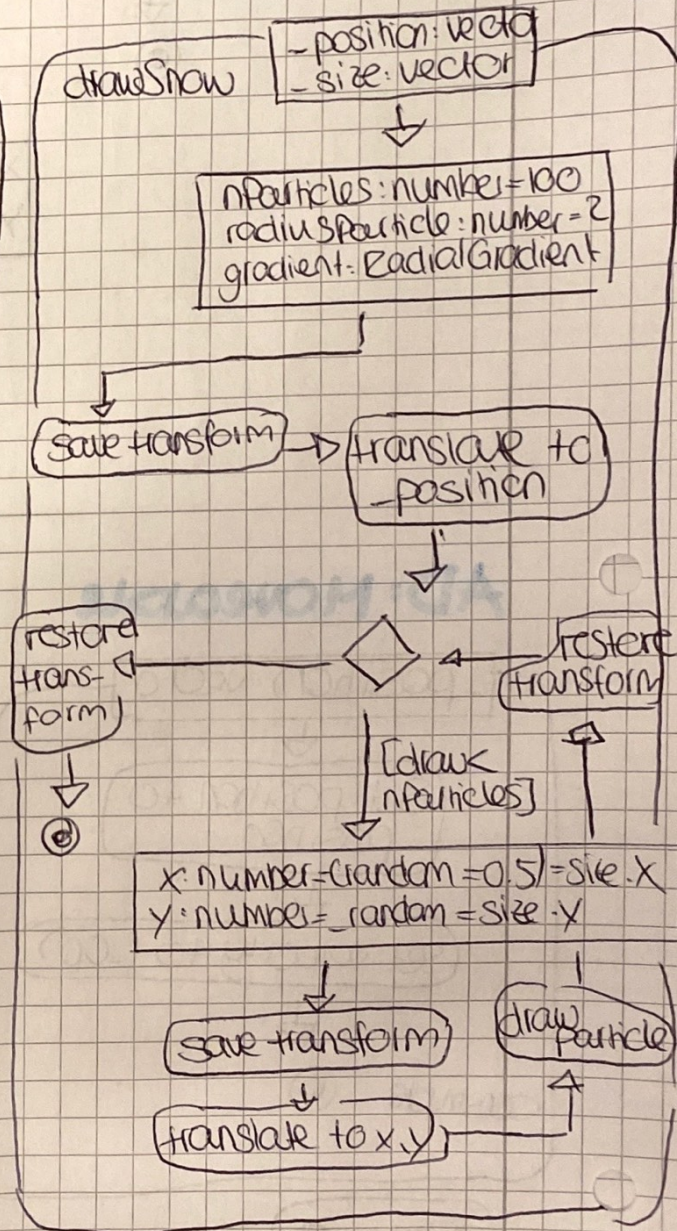 drawSnow
-position:vecto
-size:vector
nParticles:number=100
radiusParticle:number=2
gradient:RadialGradient
save transform
translate to
-position
restore
trans-
form
restore
transform
[draw<
nParticles]
x:number=(random=0.5)=size.X
y:number=_random=size.y
save transform
draw
particle
translate to x,y